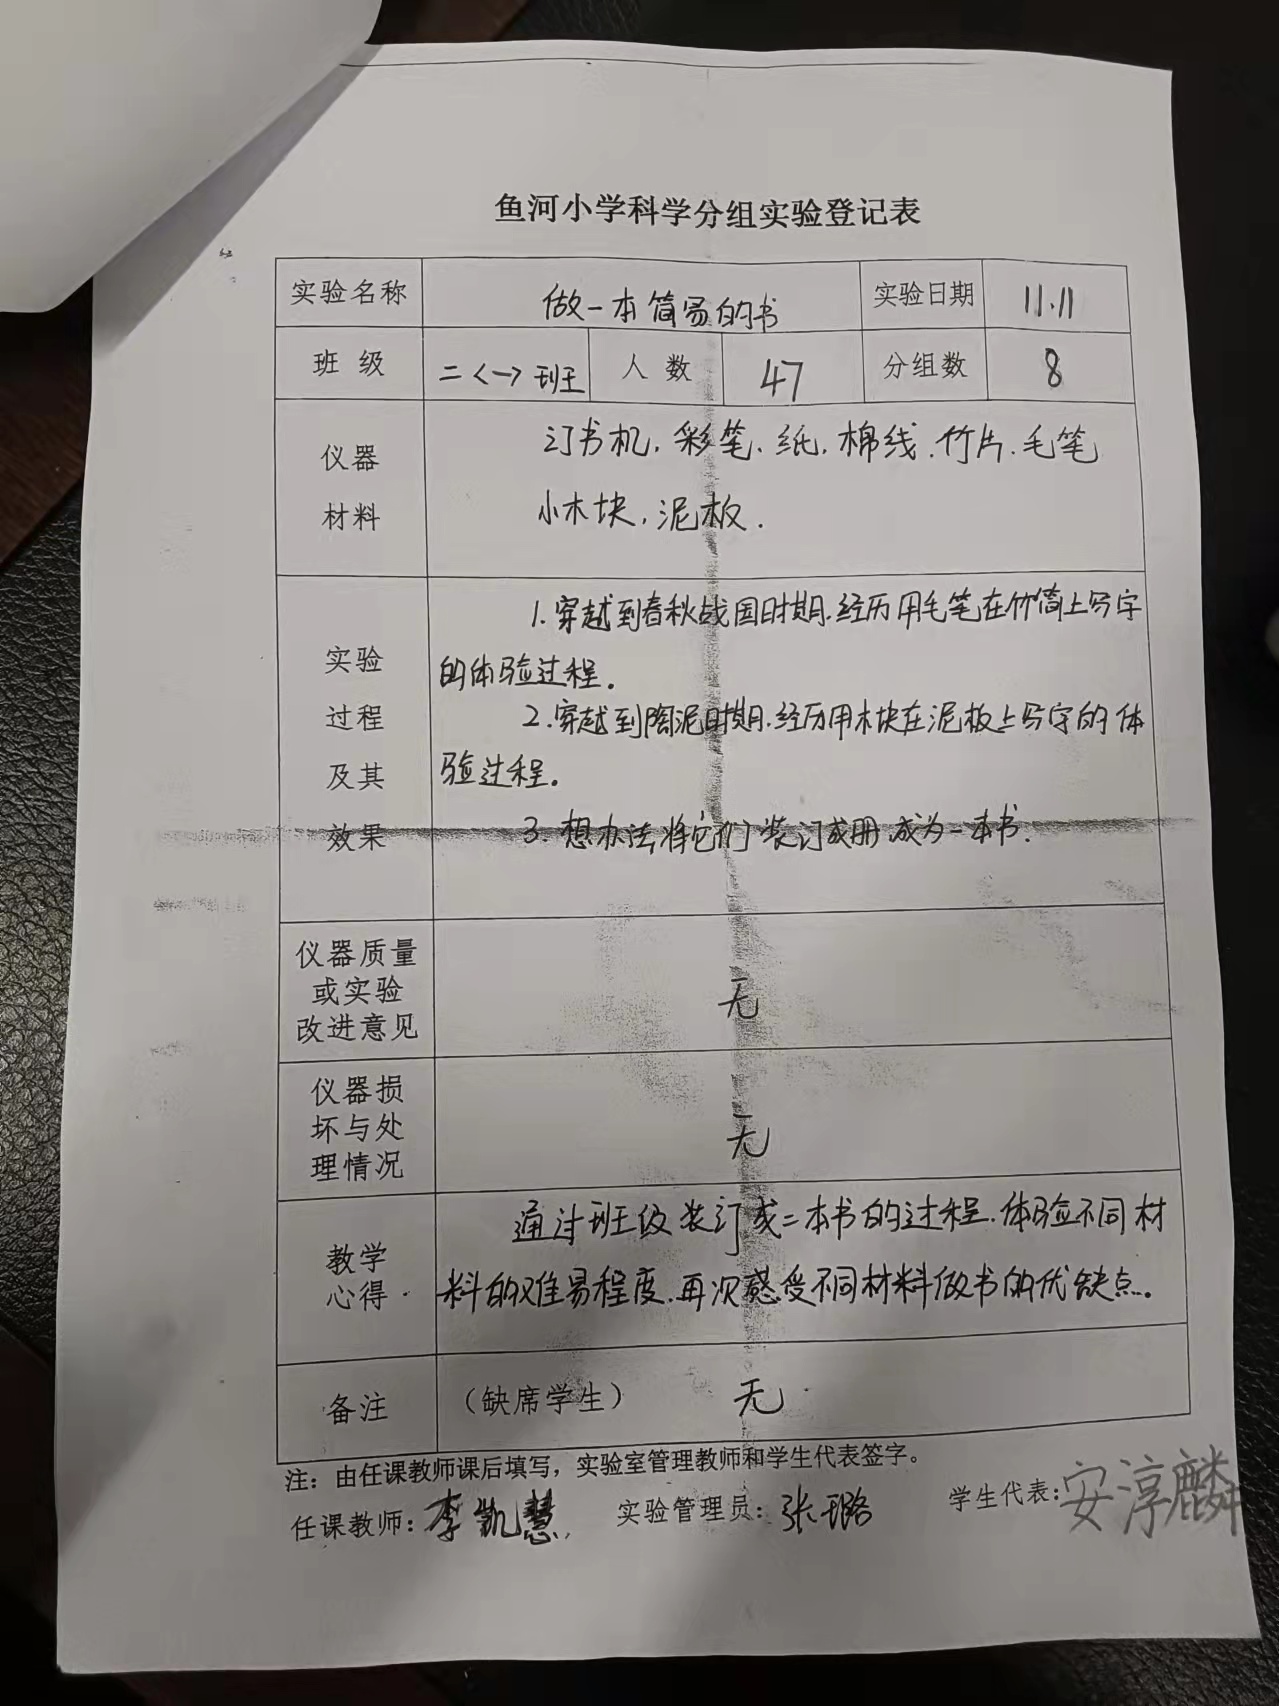 鱼河小学科学分组实验登记表
实验名称 做一本简易的书 实验日期 11.11
班 级 二<一>班 人 数 47 分组数 8
仪器
材料
订书机,彩笔、纸,棉线.竹片.毛笔
小木块,泥板.
实验
过程
及其
效果
1.穿越到春秋战国时期.经历用毛笔在竹简上写字
的体验过程。
2.穿越到陶泥时期.经历用木块在泥板上写字的体
验过程。
3.想办法将它们装订成册成为一本书.
仪器质量
或实验
改进意见
无
仪器损
坏与处
理情况
无
教学
心得
通过班级装订成一本书的过程.体验不同材
料的难易程度.再次感受不同材料做书的优缺点.
备注 (缺席学生) 无
注:由任课教师课后填写,实验室管理教师和学生代表签字。
任课教师:李凯慧 实验管理员:张璐 学生代表:安淳麟